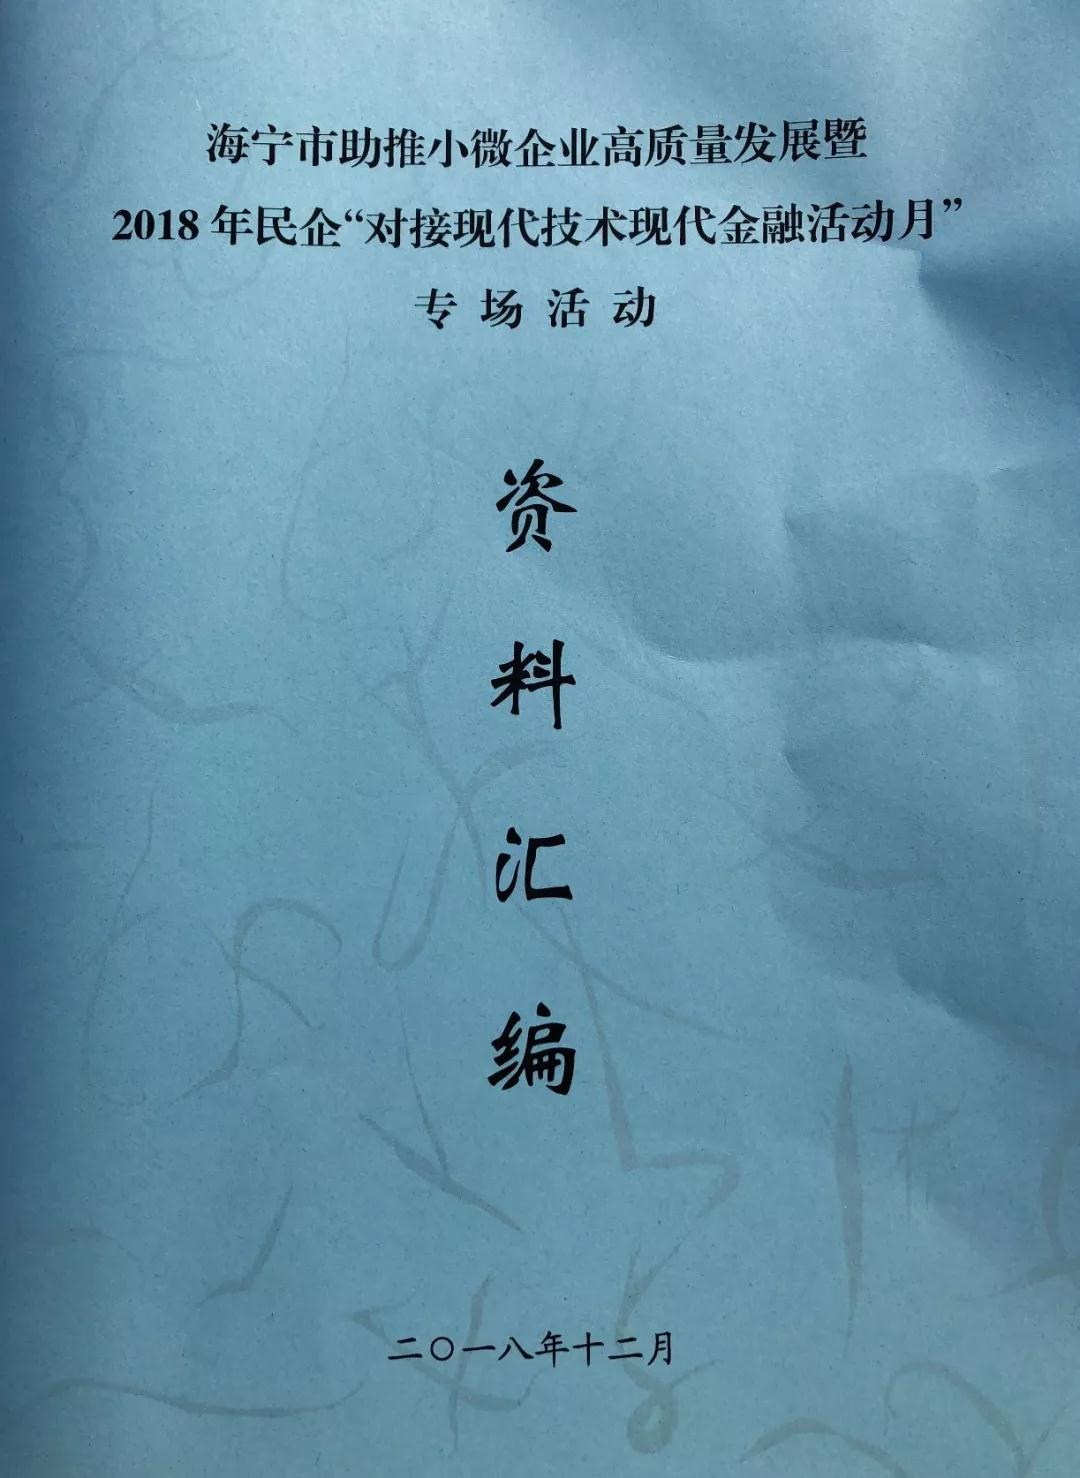 海宁市助推小微企业高质量发展暨
2018年民企“对接现代技术现代金融活动月”
专场活动
资料汇编
二〇一八年十二月